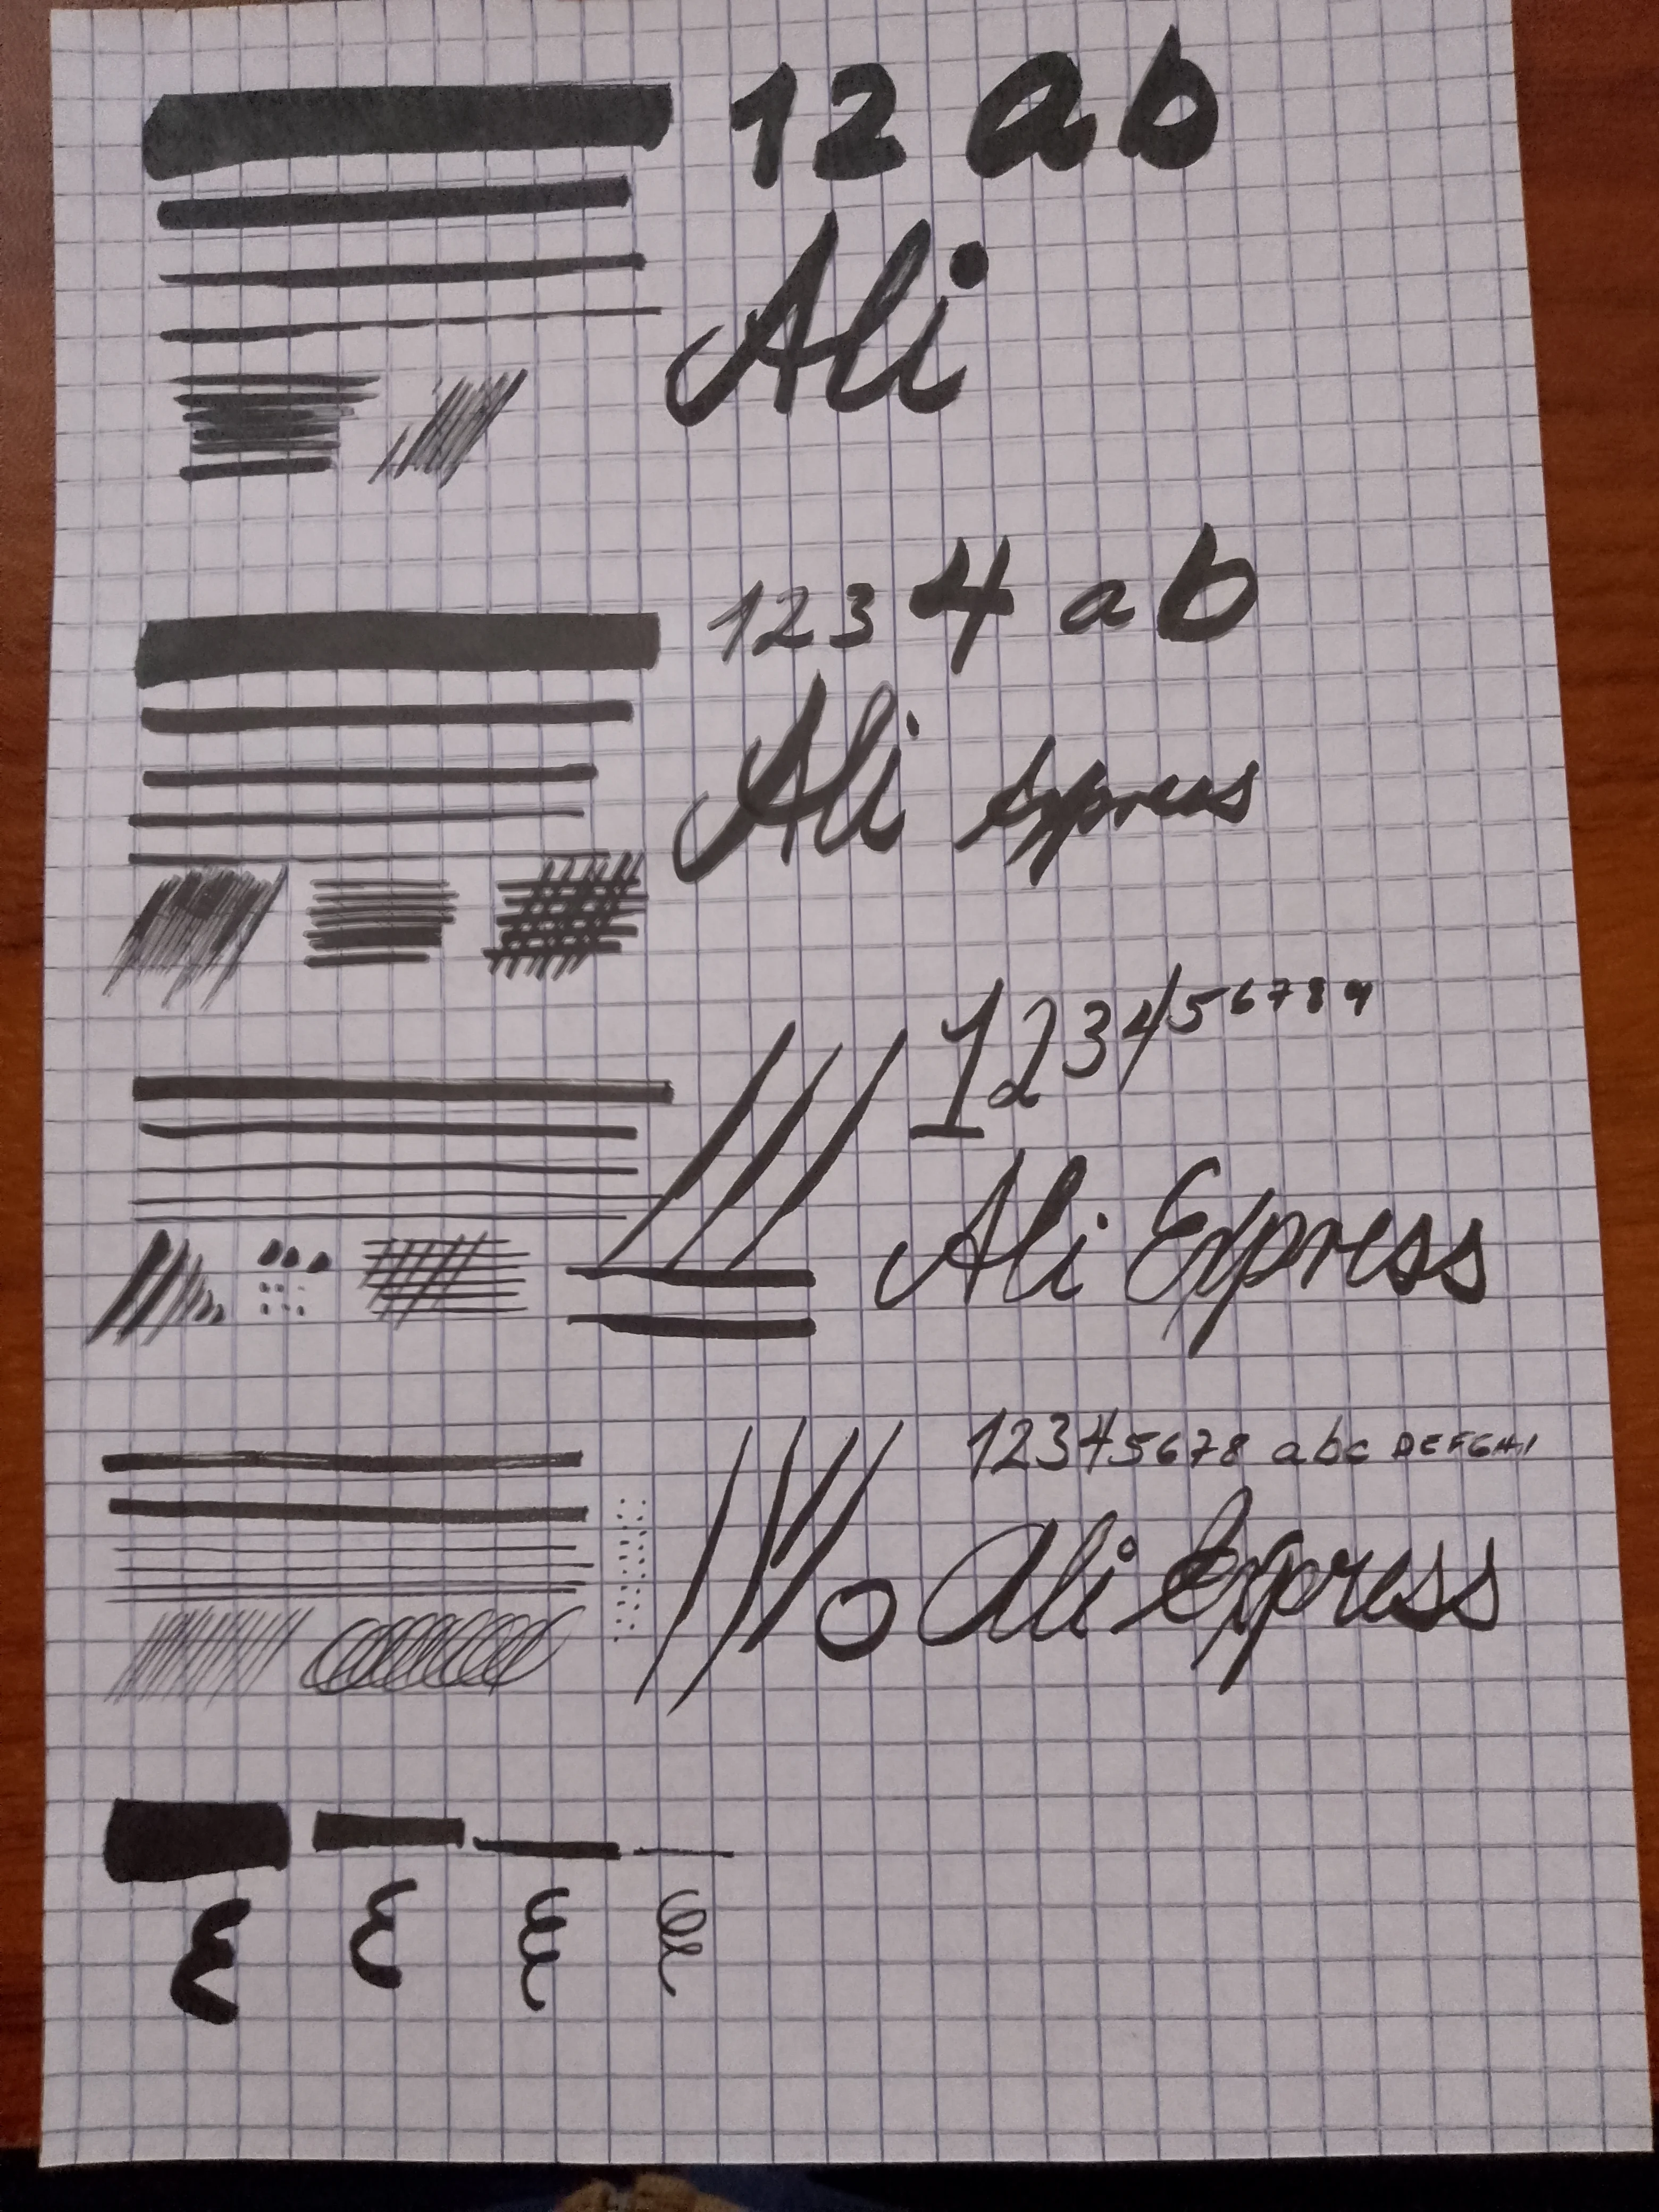 12 ab
Ali
1234 ab
Ali Express
123456789
Ali Express
12345678 abc DEFGHI
Ali Express